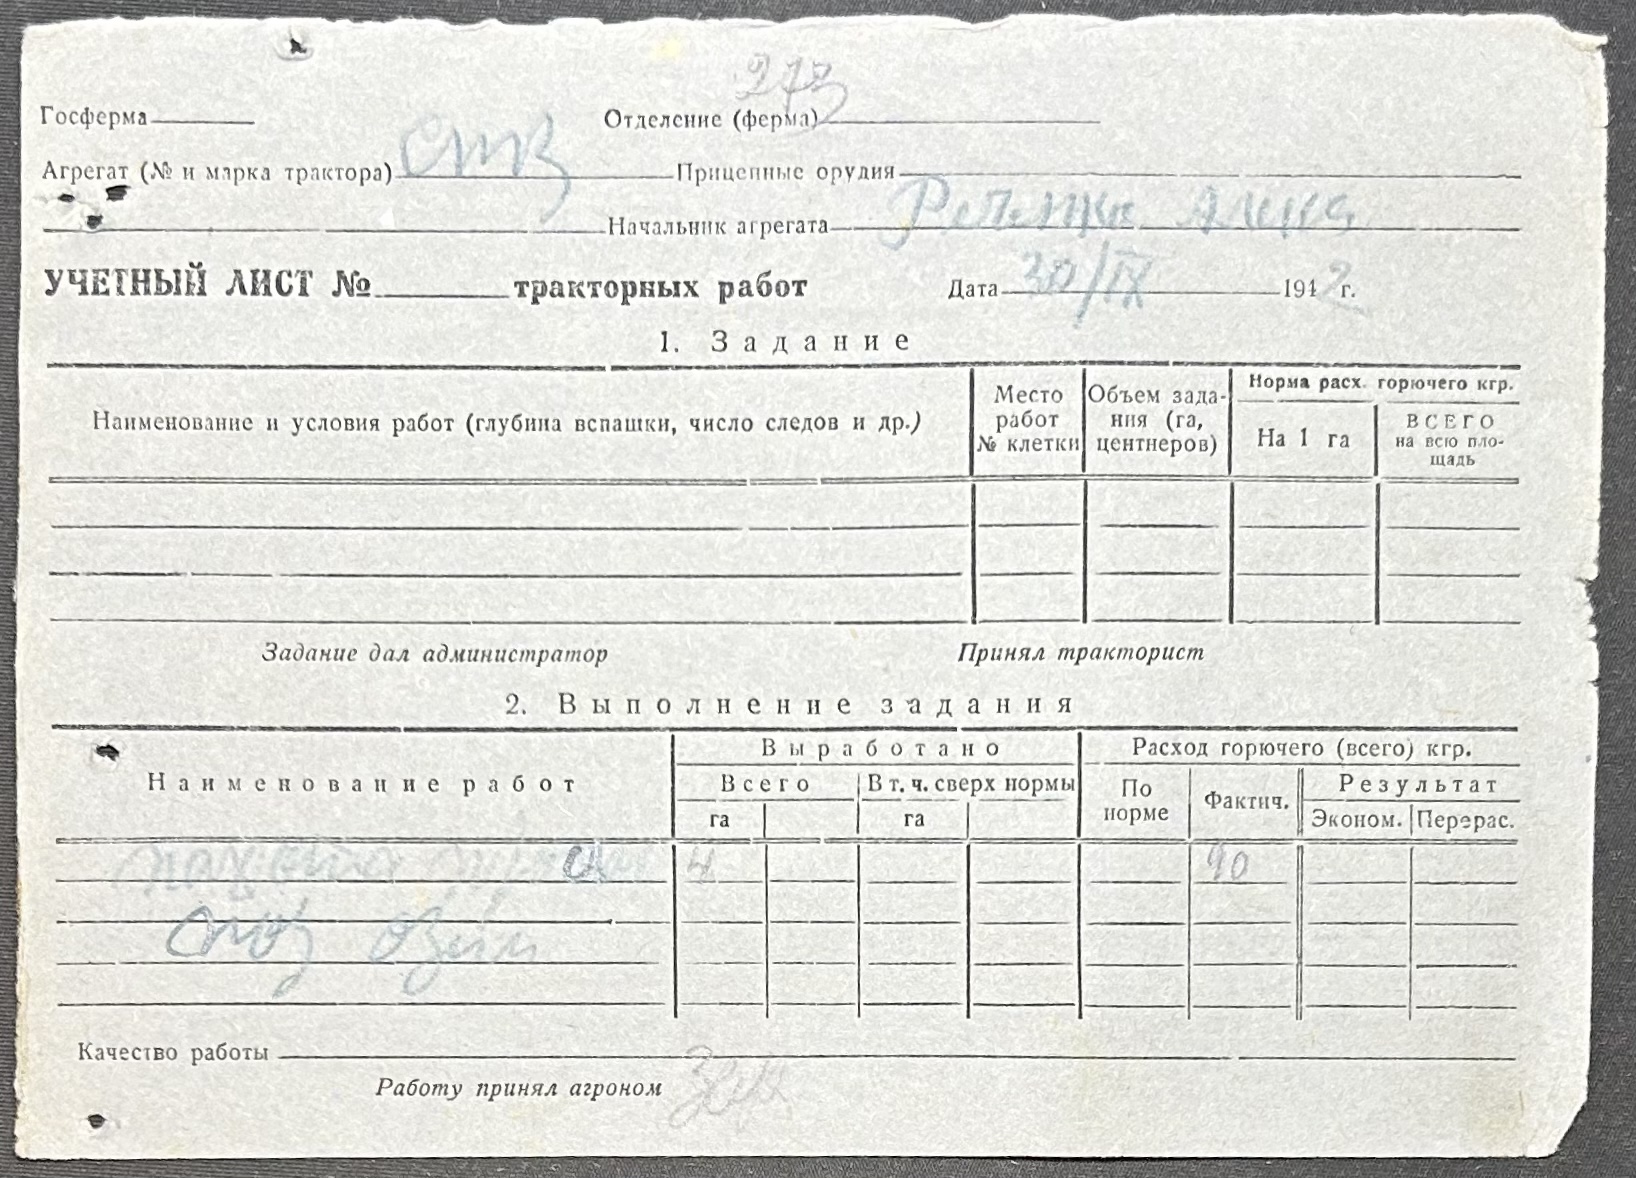 273
Госферма Отделение (ферма)
Агрегат (№ и марка трактора) СТЗ Прицепные орудия
Начальник агрегата
УЧЕТНЫЙ ЛИСТ № тракторных работ Дата 30/IX 1942 г.
1. Задание
Наименование и условия работ (глубина вспашки, число следов и др.) Место работ № клетки Объем задания (га, центнеров) Норма расх. горючего кгр.
На 1 га ВСЕГО на всю площадь
Задание дал администратор Принял тракторист
2. Выполнение задания
Наименование работ Выработано Расход горючего (всего) кгр.
Всего В т. ч. сверх нормы По норме Фактич. Результат
га га Эконом. Перерас.
4 90
Качество работы
Работу принял агроном